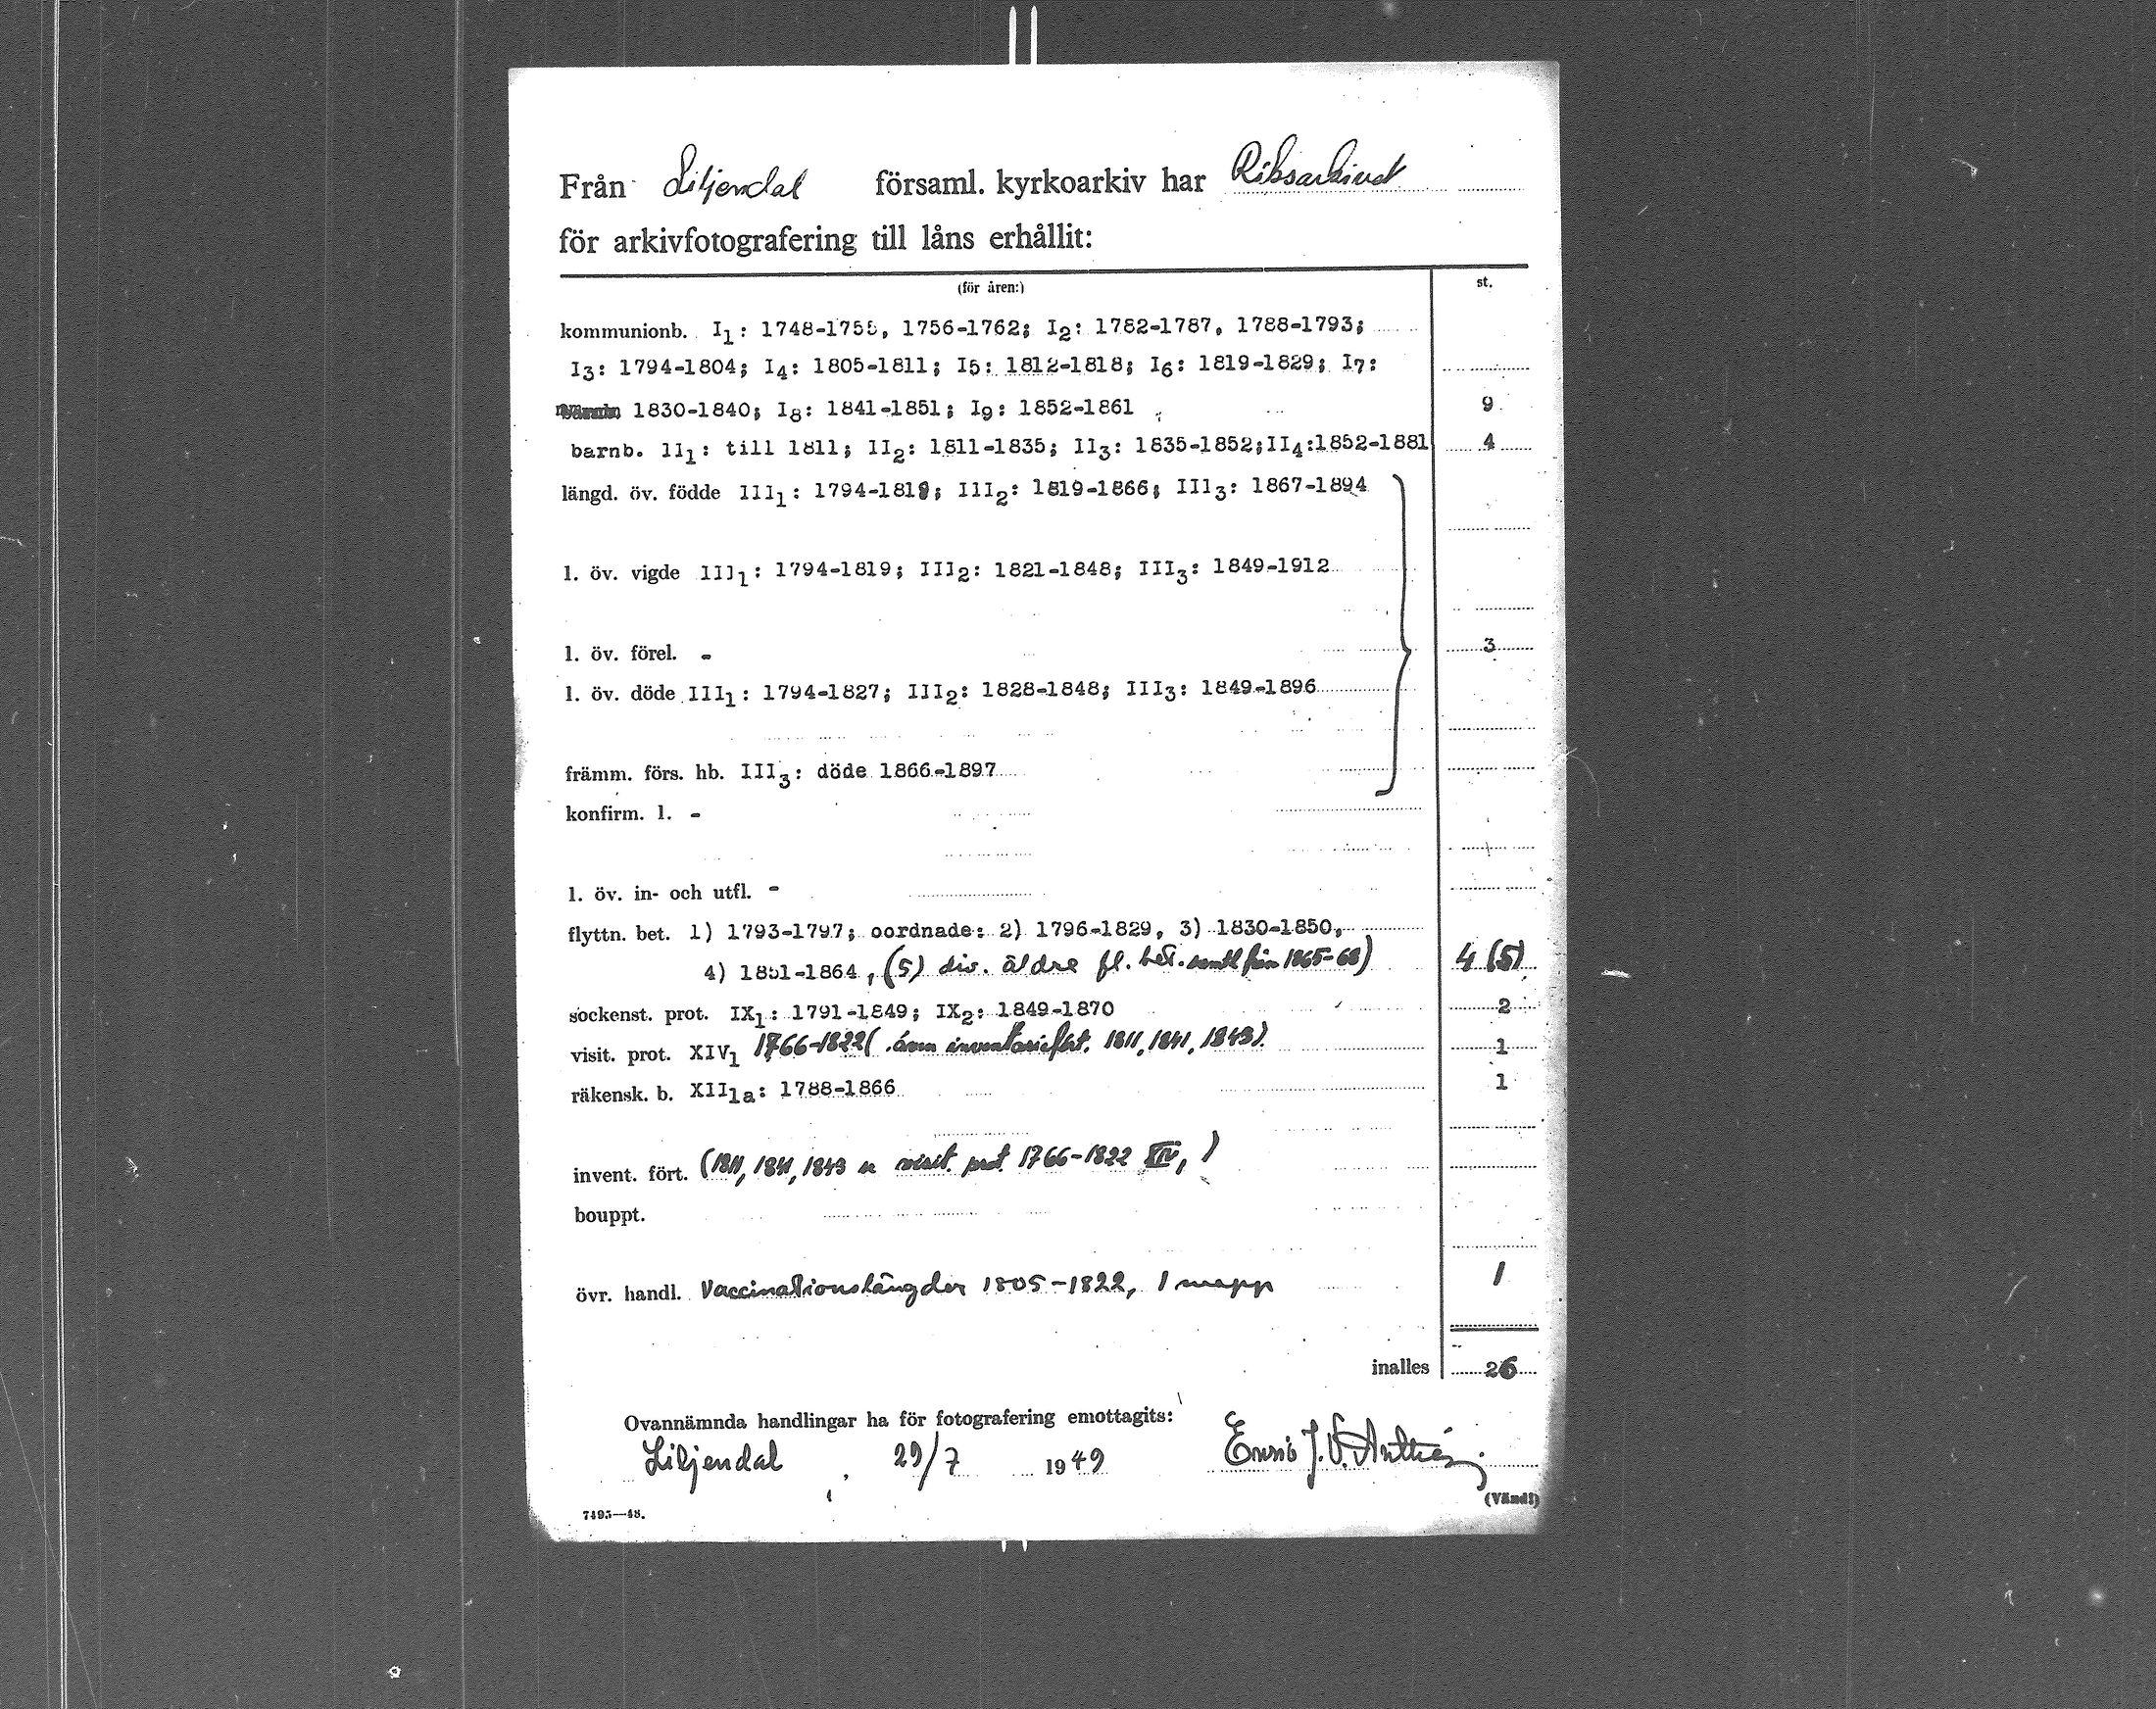 Från Liljendal församl. kyrkoarkiv har Riksarkivet
för arkivfotografering till låns erhållit:
(för åren:) st.
kommunionb. I1: 1748-1755, 1756-1762; I2: 1782-1787, 1788-1793;
I3: 1794-1804; I4: 1805-1811; I5: 1812-1818; I6: 1819-1829; I7:
1830-1840; I8: 1841-1851; I9: 1852-1861 9
barnb. II1: till 1811; II2: 1811-1835; II3: 1835-1852;II4:1852-1881 4
längd. öv. födde III1: 1794-1819; III2: 1819-1866; III3: 1867-1894
l. öv. vigde III1: 1794-1819; III2: 1821-1848; III3: 1849-1912
l. öv. förel. - 3
l. öv. döde III1: 1794-1827; III2: 1828-1848; III3: 1849-1896
främm. förs. hb. III3: döde 1866-1897
konfirm. l. -
l. öv. in- och utfl. -
flyttn. bet. 1) 1793-1797; oordnade: 2) 1796-1829, 3) 1830-1850,
4) 1851-1864, (5) div. äldre fl. bet. samt från 1865-68) 4 (5)
sockenst. prot. IX1: 1791-1849; IX2: 1849-1870 2
visit. prot. XIV1 1766-1822( även inventariefört. 1811, 1841, 1843). 1
räkensk. b. XII1a: 1788-1866 1
invent. fört. (1811, 1841, 1843 visit. prot 1766-1822 XIV1)
bouppt.
övr. handl. Vaccinationslängder 1805-1822, 1 mapp 1
inalles 26
Ovannämnda handlingar ha för fotografering emottagits:
Liljendal, 29/7 1949 J. V.
(Vänd!)
7495—48.